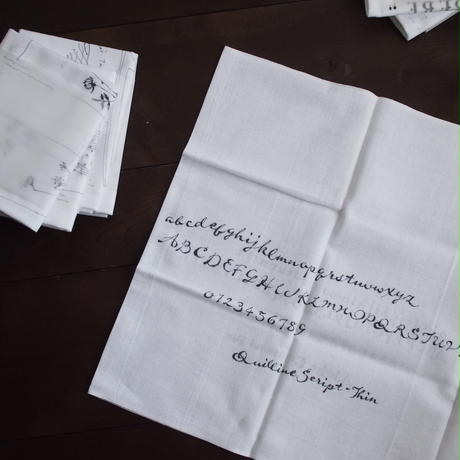 abcdefghijklmnopqrstuvwxyz
ABCDEFGHIJKLMNOPQRSTUV
0123456789
Quilline Script-Thin